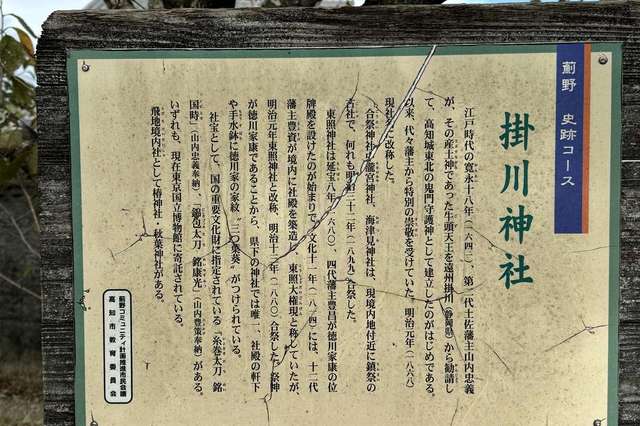 薊野 史跡コース
掛川神社
江戸時代の寛永十八年(一六四一)、第二代土佐藩主山内忠義
が、その産土神であった牛頭天王を遠州掛川(静岡県)から勧請し
て、高知城東北の鬼門守護神として建立したのがはじめである。
以来、代々藩主から特別の崇敬を受けていた。明治元年(一八六八)
現社名に改称した。
合祭神社の龍宮神社、海津見神社は、現境内地付近に鎮祭の
古社で、何れも明治三十二年(一八九九)合祭した。
東照神社は延宝八年(一六八〇)、四代藩主豊昌が徳川家康の位
牌殿を設けたのが始まりで、文化十一年(一八一四)には、十二代
藩主豊資が境内に社殿を築造し、東照大権現と称していたが、
明治元年東照神社と改称、明治十三年(一八八〇)合祭した。祭神
が徳川家康であることから、県下の神社では唯一、社殿の軒下
や手水鉢に徳川家の家紋〝三つ葉葵〟がつけられている。
社宝として、国の重要文化財に指定されている「糸巻太刀 銘
国時」(山内忠義奉納)、「錦包太刀 銘康光」(山内豊策奉納)がある。
いずれも、現在東京国立博物館に寄託されている。
飛地境内社として椿神社・秋葉神社がある。
薊野コミュニティ計画推進市民会議
高知市教育委員会